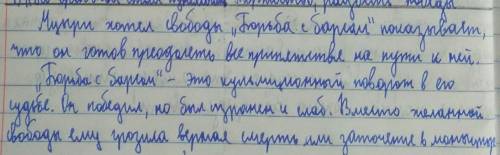 Мцыри хотел свободы „Борьба с барсом" показывает,
что он готов преодолеть все препятствие на пути к ней.
„Борьба с барсом" - это кульмционный поворот в его
судьбе. Он победил, но был изранен и слаб. Вместо желанной
свободы ему грозила верная смерть или заточение в